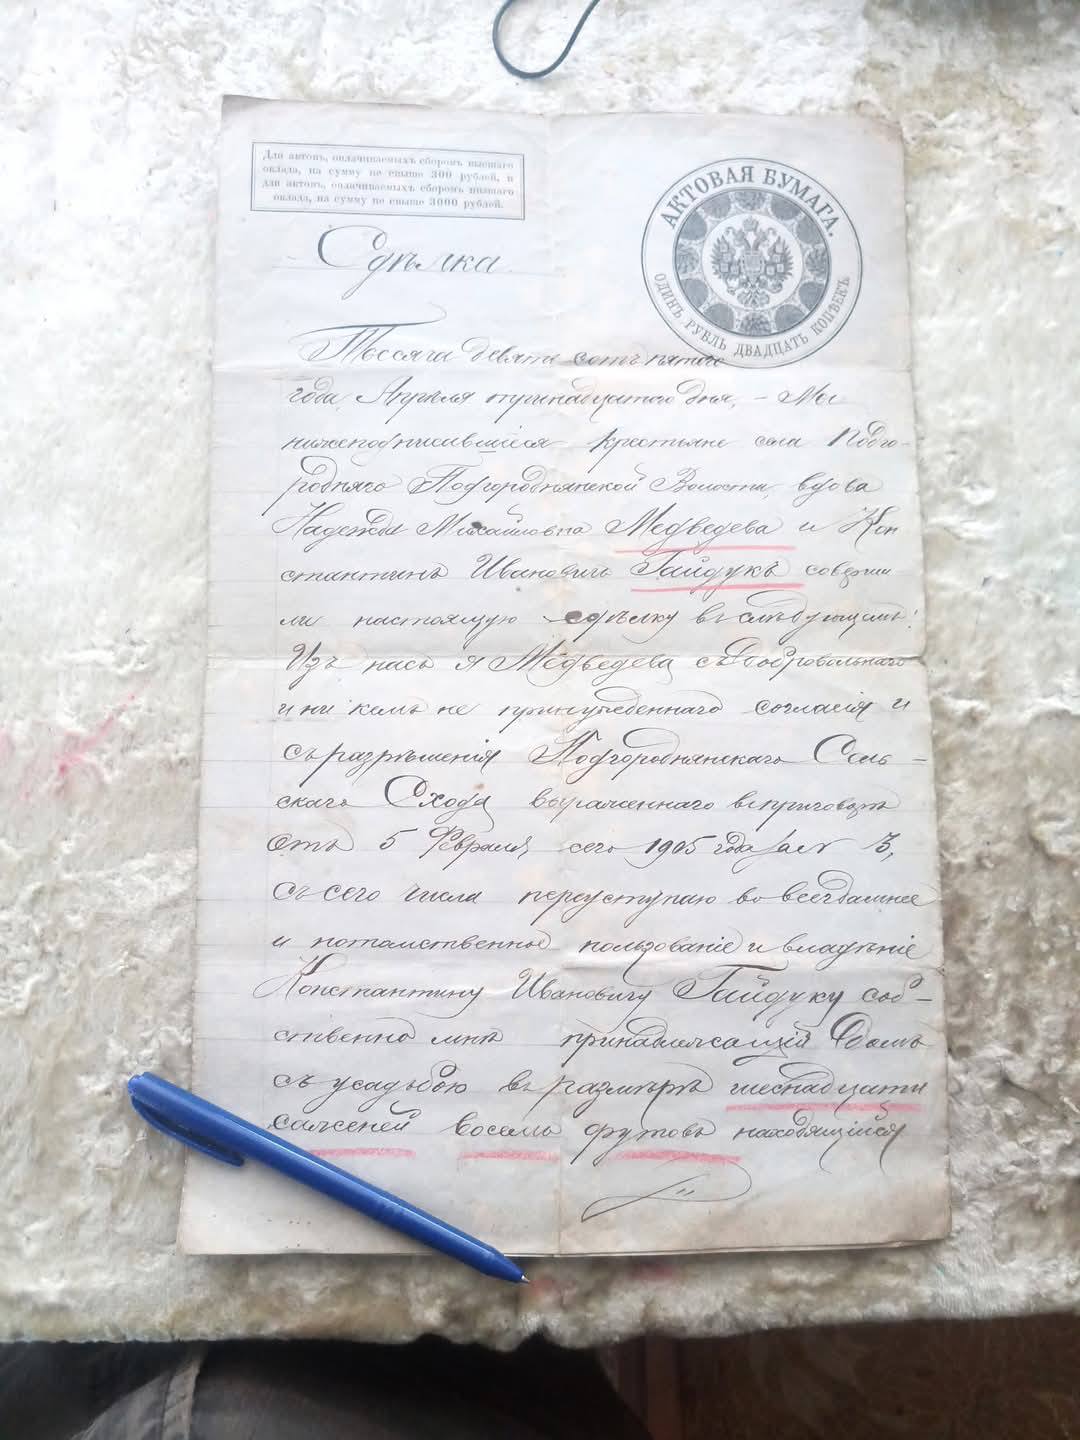 Для актовъ, оплачиваемыхъ сборомъ высшаго
оклада, на сумму не свыше 300 рублей, и
для актовъ, оплачиваемыхъ сборомъ низшаго
оклада, на сумму не свыше 3000 рублей.
АКТОВАЯ БУМАГА.
ОДИНЪ РУБЛЬ ДВАДЦАТЬ КОПѢЕКЪ
Сдѣлка.
Тысяча девять сотъ пятого
года, Апрѣля тринадцатого дня, - Мы
нижеподписавшіеся крестьяне села Подго-
родняго Подгороднянской Волости, вдова
Надежда Михайловна Медведева и Кон
стантинъ Ивановичъ Гайдукъ соверши
ли настоящую сдѣлку въ слѣдующемъ:
Изъ насъ я Медведева съ добровольнаго
и ни кемъ не принужденнаго согласія и
съ разрѣшенія Подгороднянскаго Сель-
скаго Схода выраженнаго въ приговорѣ
отъ 5 Февраля сего 1905 года за № 3,
съ сего числа переуступаю во всегдашнее
и потомственное пользованіе и владѣніе
Константину Ивановичу Гайдуку соб-
ственно мнѣ принадлежащій Домъ
съ усадьбою въ размѣрѣ шеснадцати
саженей восемь футовъ находящійся